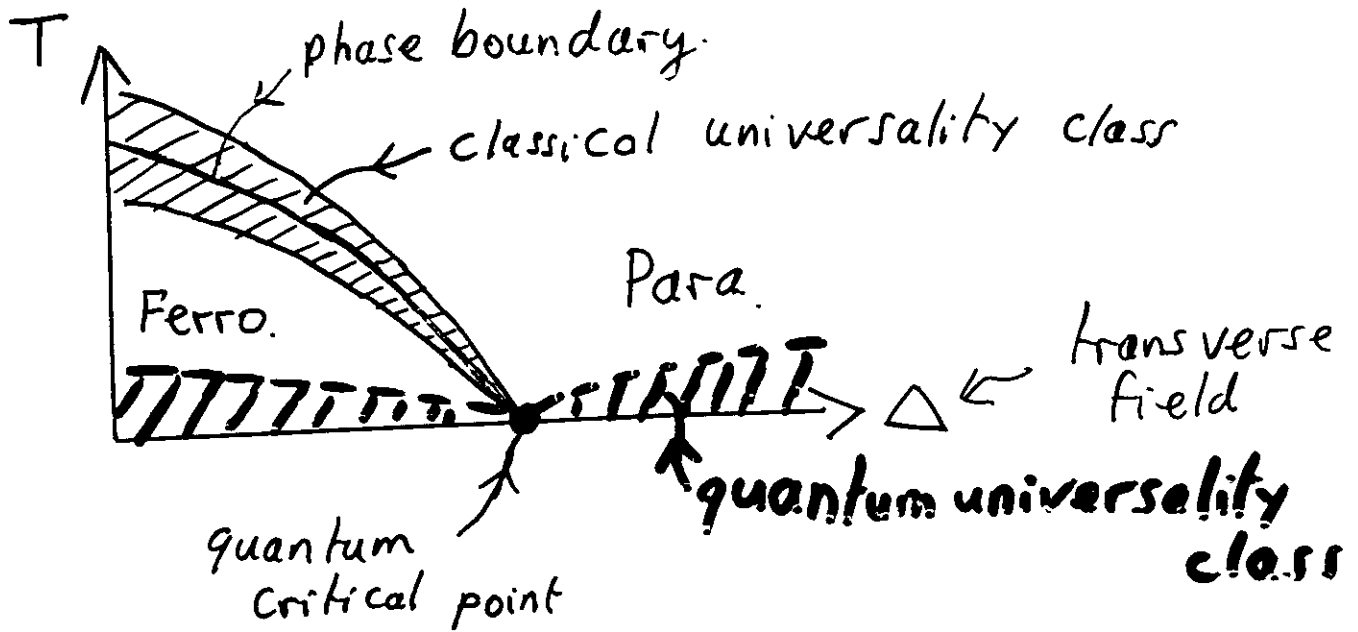 T
phase boundary.
classical universality class
Ferro.
Para.
Δ
transverse
field
quantum universality
class
quantum
critical point